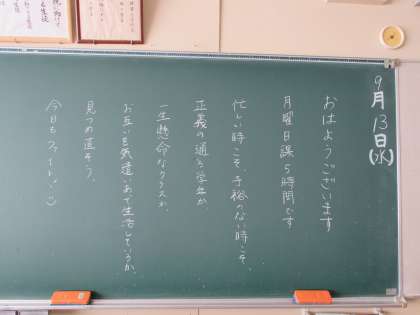 9月13日(水)
おはようございます
月曜日課5時間です
忙しい時こそ、余裕のない時こそ、
正義の通る学年か、
一生懸命なクラスか、
お互いを気遣いあて生活しているか、
見つめ直そう。
今日もファイト、